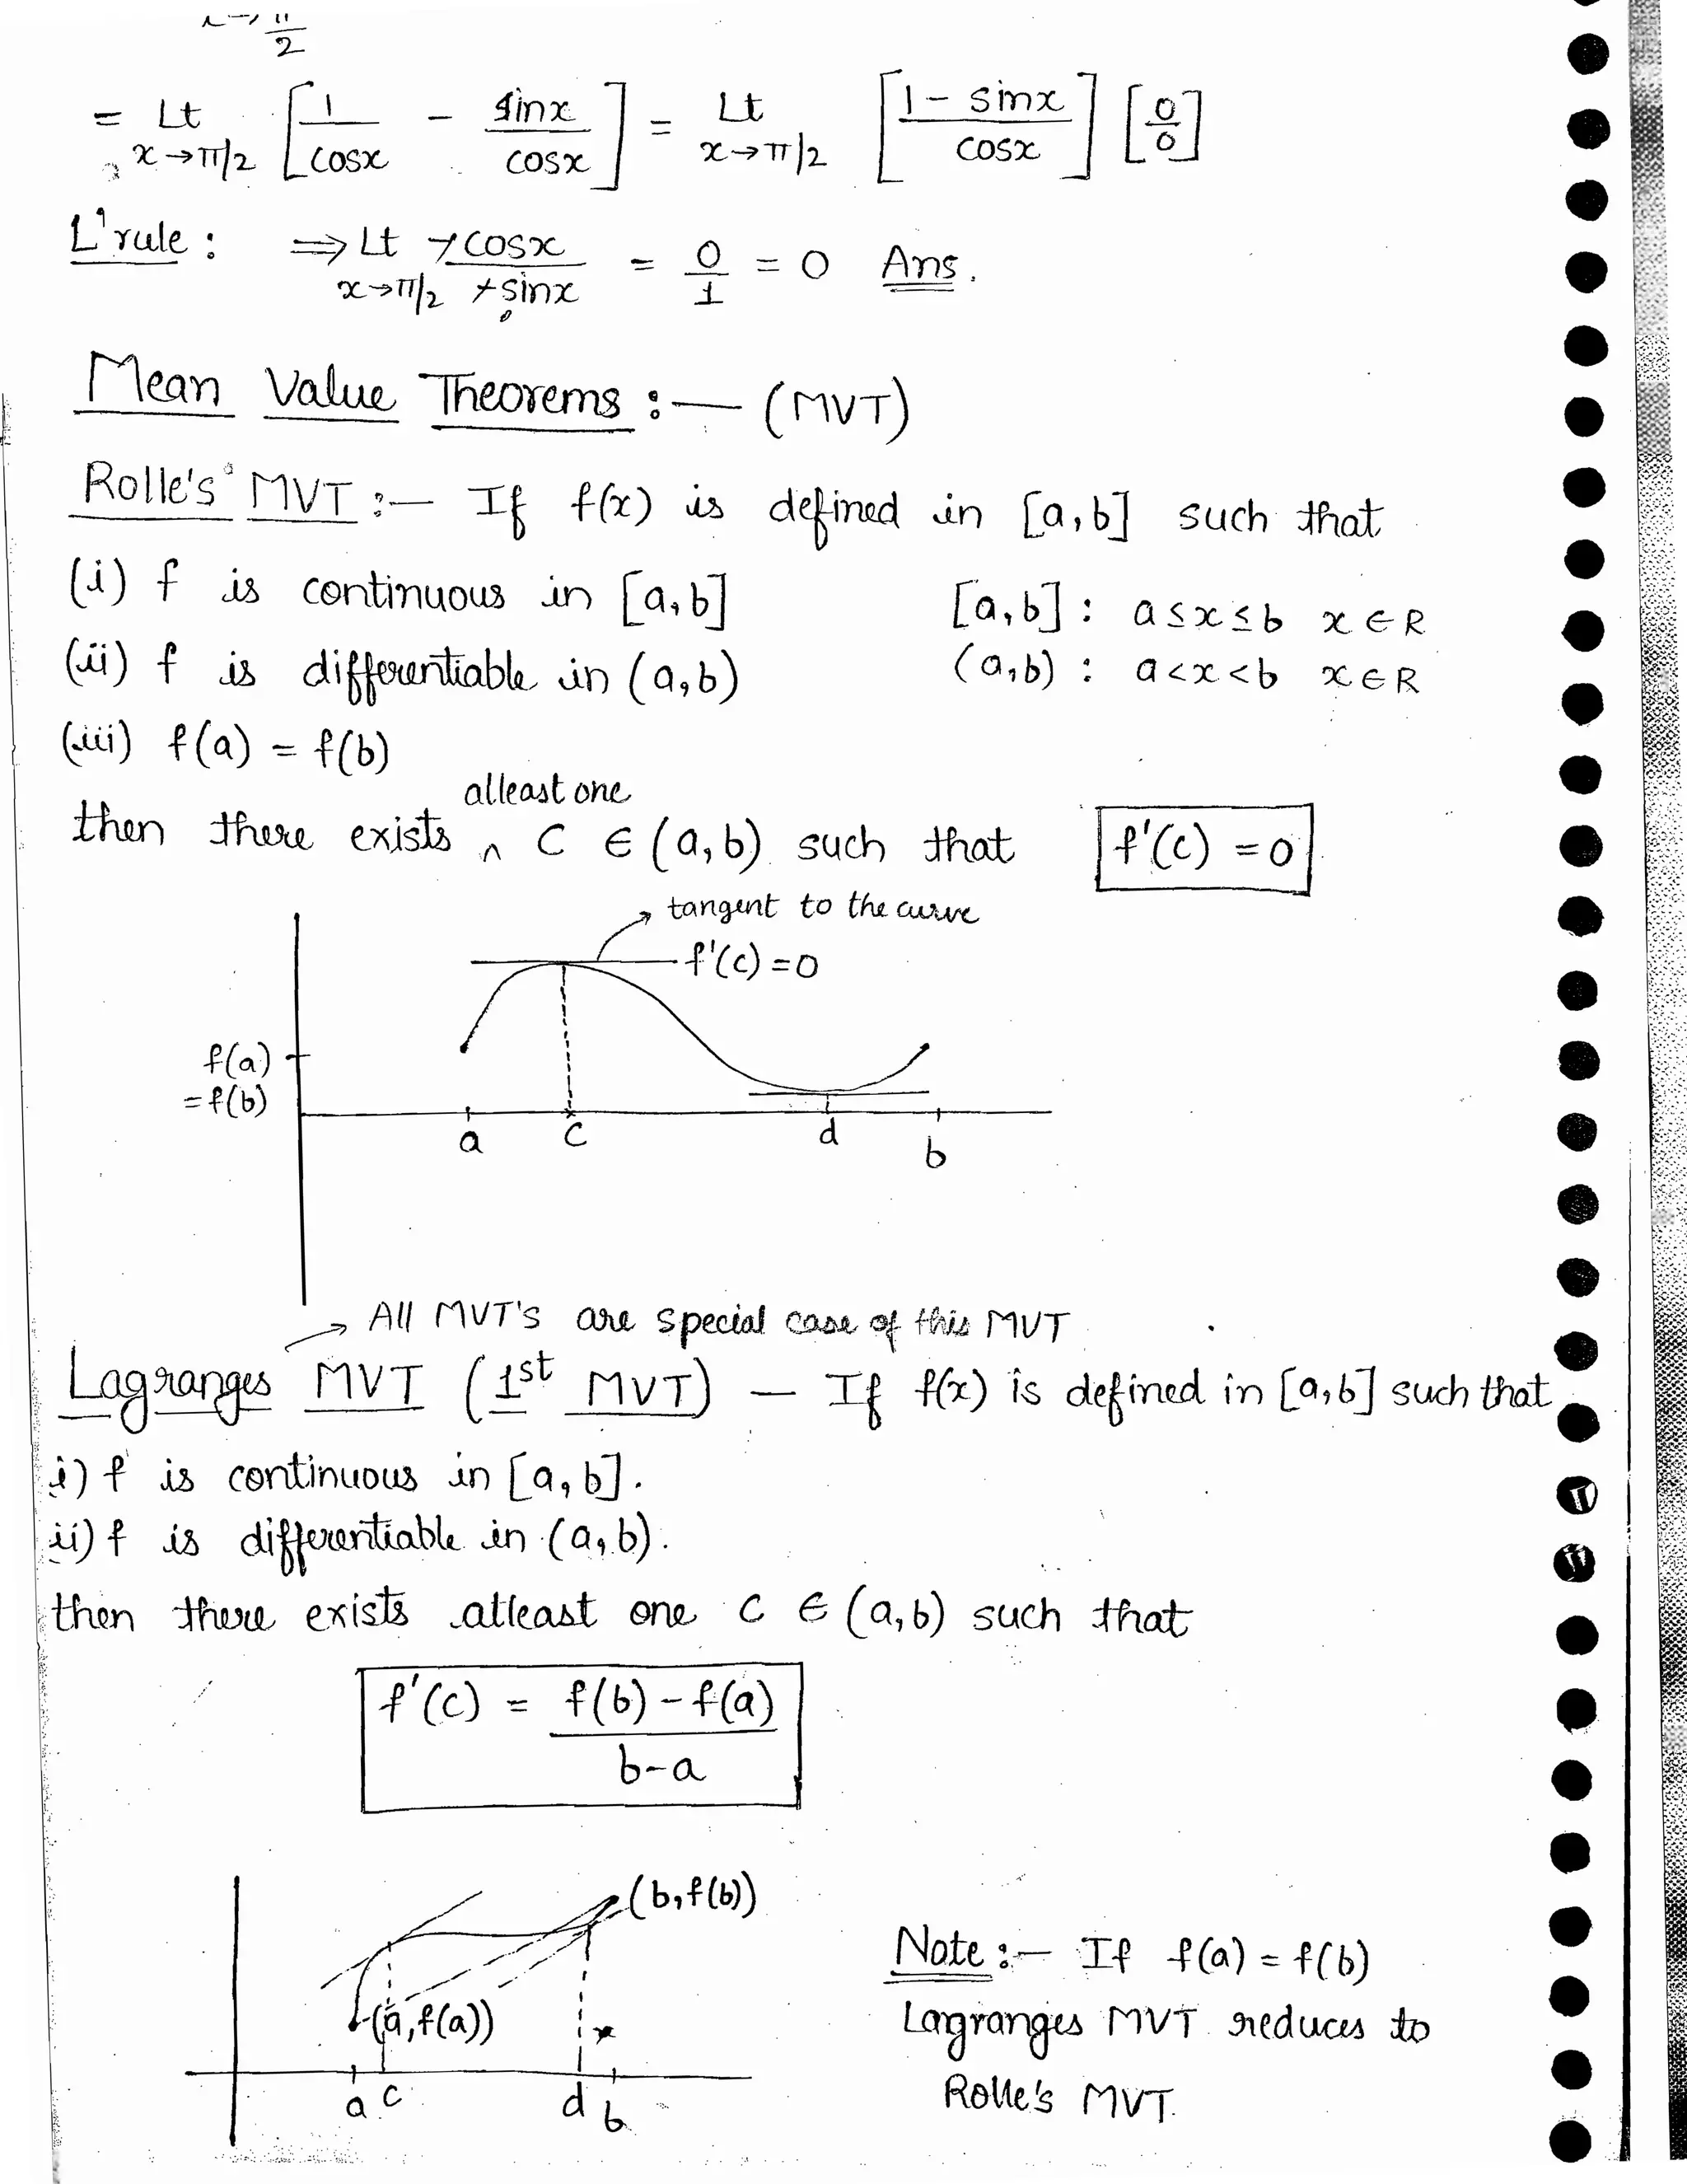 x→π/2
= Lt x→π/2 [1/cosx - sinx/cosx] = Lt x→π/2 [1 - sinx/cosx] [0/0]
L' rule : ⇒ Lt x→π/2 -cosx/-sinx = 0/1 = 0 Ans.
Mean Value Theorems :— (MVT)
Rolle's MVT :— If f(x) is defined in [a,b] such that
(i) f is continuous in [a,b] [a,b] : a≤x≤b x∈R
(ii) f is differentiable in (a,b) (a,b) : a<x<b x∈R
(iii) f(a) = f(b)
then there exists ^ atleast one C ∈ (a,b) such that f'(c) = 0
tangent to the curve
f'(c) = 0
f(a)
= f(b)
a c d b
→ All MVT's are special case of this MVT
Lagranges MVT (1st MVT) — If f(x) is defined in [a,b] such that
i) f is continuous in [a,b].
ii) f is differentiable in (a,b).
then there exists atleast one c ∈ (a,b) such that
f'(c) = f(b) - f(a) / b-a
(b,f(b))
(a,f(a))
a c d b
Note :— If f(a) = f(b)
Lagranges MVT reduces to
Rolle's MVT.